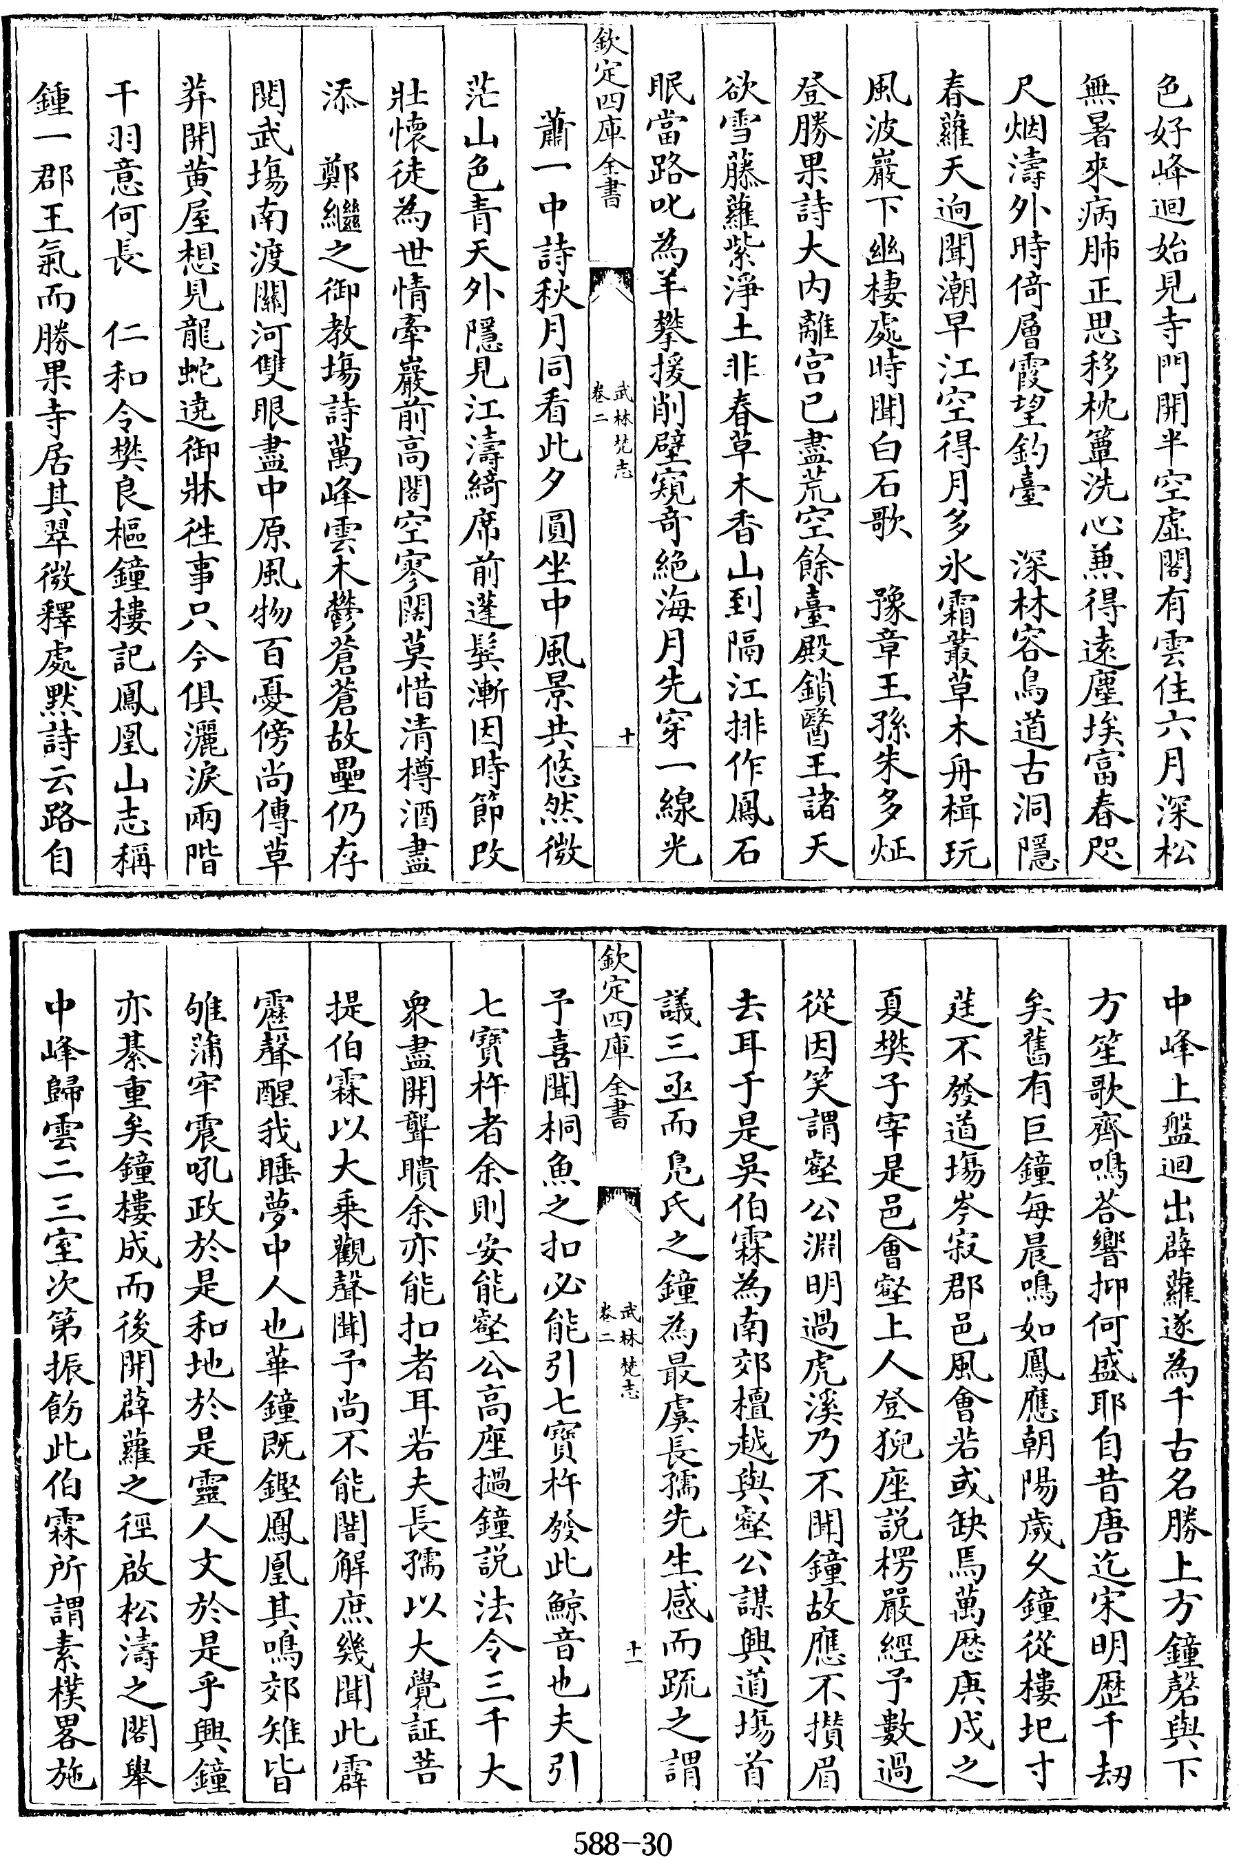 色好峰迴始見寺門開半空虛閣有雲住六月深松
無暑來病肺正思移枕簟洗心兼得遠塵埃富春咫
尺烟濤外時倚層霞望釣臺　深林容鳥道古洞隱
春蘿天迥聞潮早江空得月多氷霜叢草木舟楫玩
風波巖下幽棲處時聞白石歌　豫章王孫朱多炡
登勝果詩大内離宮已盡荒空餘臺殿鎖醫王諸天
欲雪藤蘿紫淨土非春草木香山到隔江排作鳳石
眠當路叱為羊攀援削壁窺奇絶海月先穿一線光
欽定四庫全書
武林梵志
卷二
十
蕭一中詩秋月同看此夕圓坐中風景共悠然微
茫山色青天外隱見江濤綺席前蓬鬂漸因時節改
壯懷徒為世情牽巖前高閣空寥闊莫惜清樽酒盡
添　鄭繼之御教塲詩萬峰雲木鬱蒼蒼故壘仍存
閱武塲南渡關河雙眼盡中原風物百憂傍尚傳草
莽開黄屋想見龍蛇遶御牀徃事只今俱灑淚兩階
干羽意何長　仁和令樊良樞鐘樓記鳳凰山志稱
鍾一郡王氣而勝果寺居其翠微釋處默詩云路自
中峰上盤迴出薜蘿遂為千古名勝上方鐘磬與下
方笙歌齊鳴荅響抑何盛耶自昔唐迄宋明歴千刼
矣舊有巨鐘每晨鳴如鳳應朝陽歲久鐘從樓圯寸
莛不發道塲岑寂郡邑風會若或缺焉萬厯庚戌之
夏樊子宰是邑會壑上人登猊座説楞嚴經予數過
從因笑謂壑公淵明過虎溪乃不聞鐘故應不攅眉
去耳于是吳伯霖為南郊檀越與壑公謀興道塲首
議三亟而鳬氏之鐘為最虞長孺先生感而疏之謂
欽定四庫全書
武林梵志
卷二
十一
予喜聞桐魚之扣必能引七寳杵發此鯨音也夫引
七寳杵者余則安能壑公高座撾鐘説法令三千大
衆盡開聾聵余亦能扣者耳若夫長孺以大覺証菩
提伯霖以大乗觀聲聞予尚不能闇解庶幾聞此霹
靂聲醒我睡夢中人也華鐘既鏗鳳凰其鳴郊雉皆
雊蒲牢震吼政於是和地於是靈人文於是乎興鐘
亦綦重矣鐘樓成而後開薜蘿之徑啟松濤之閣舉
中峰歸雲二三室次第振飭此伯霖所謂素樸畧施
588-30